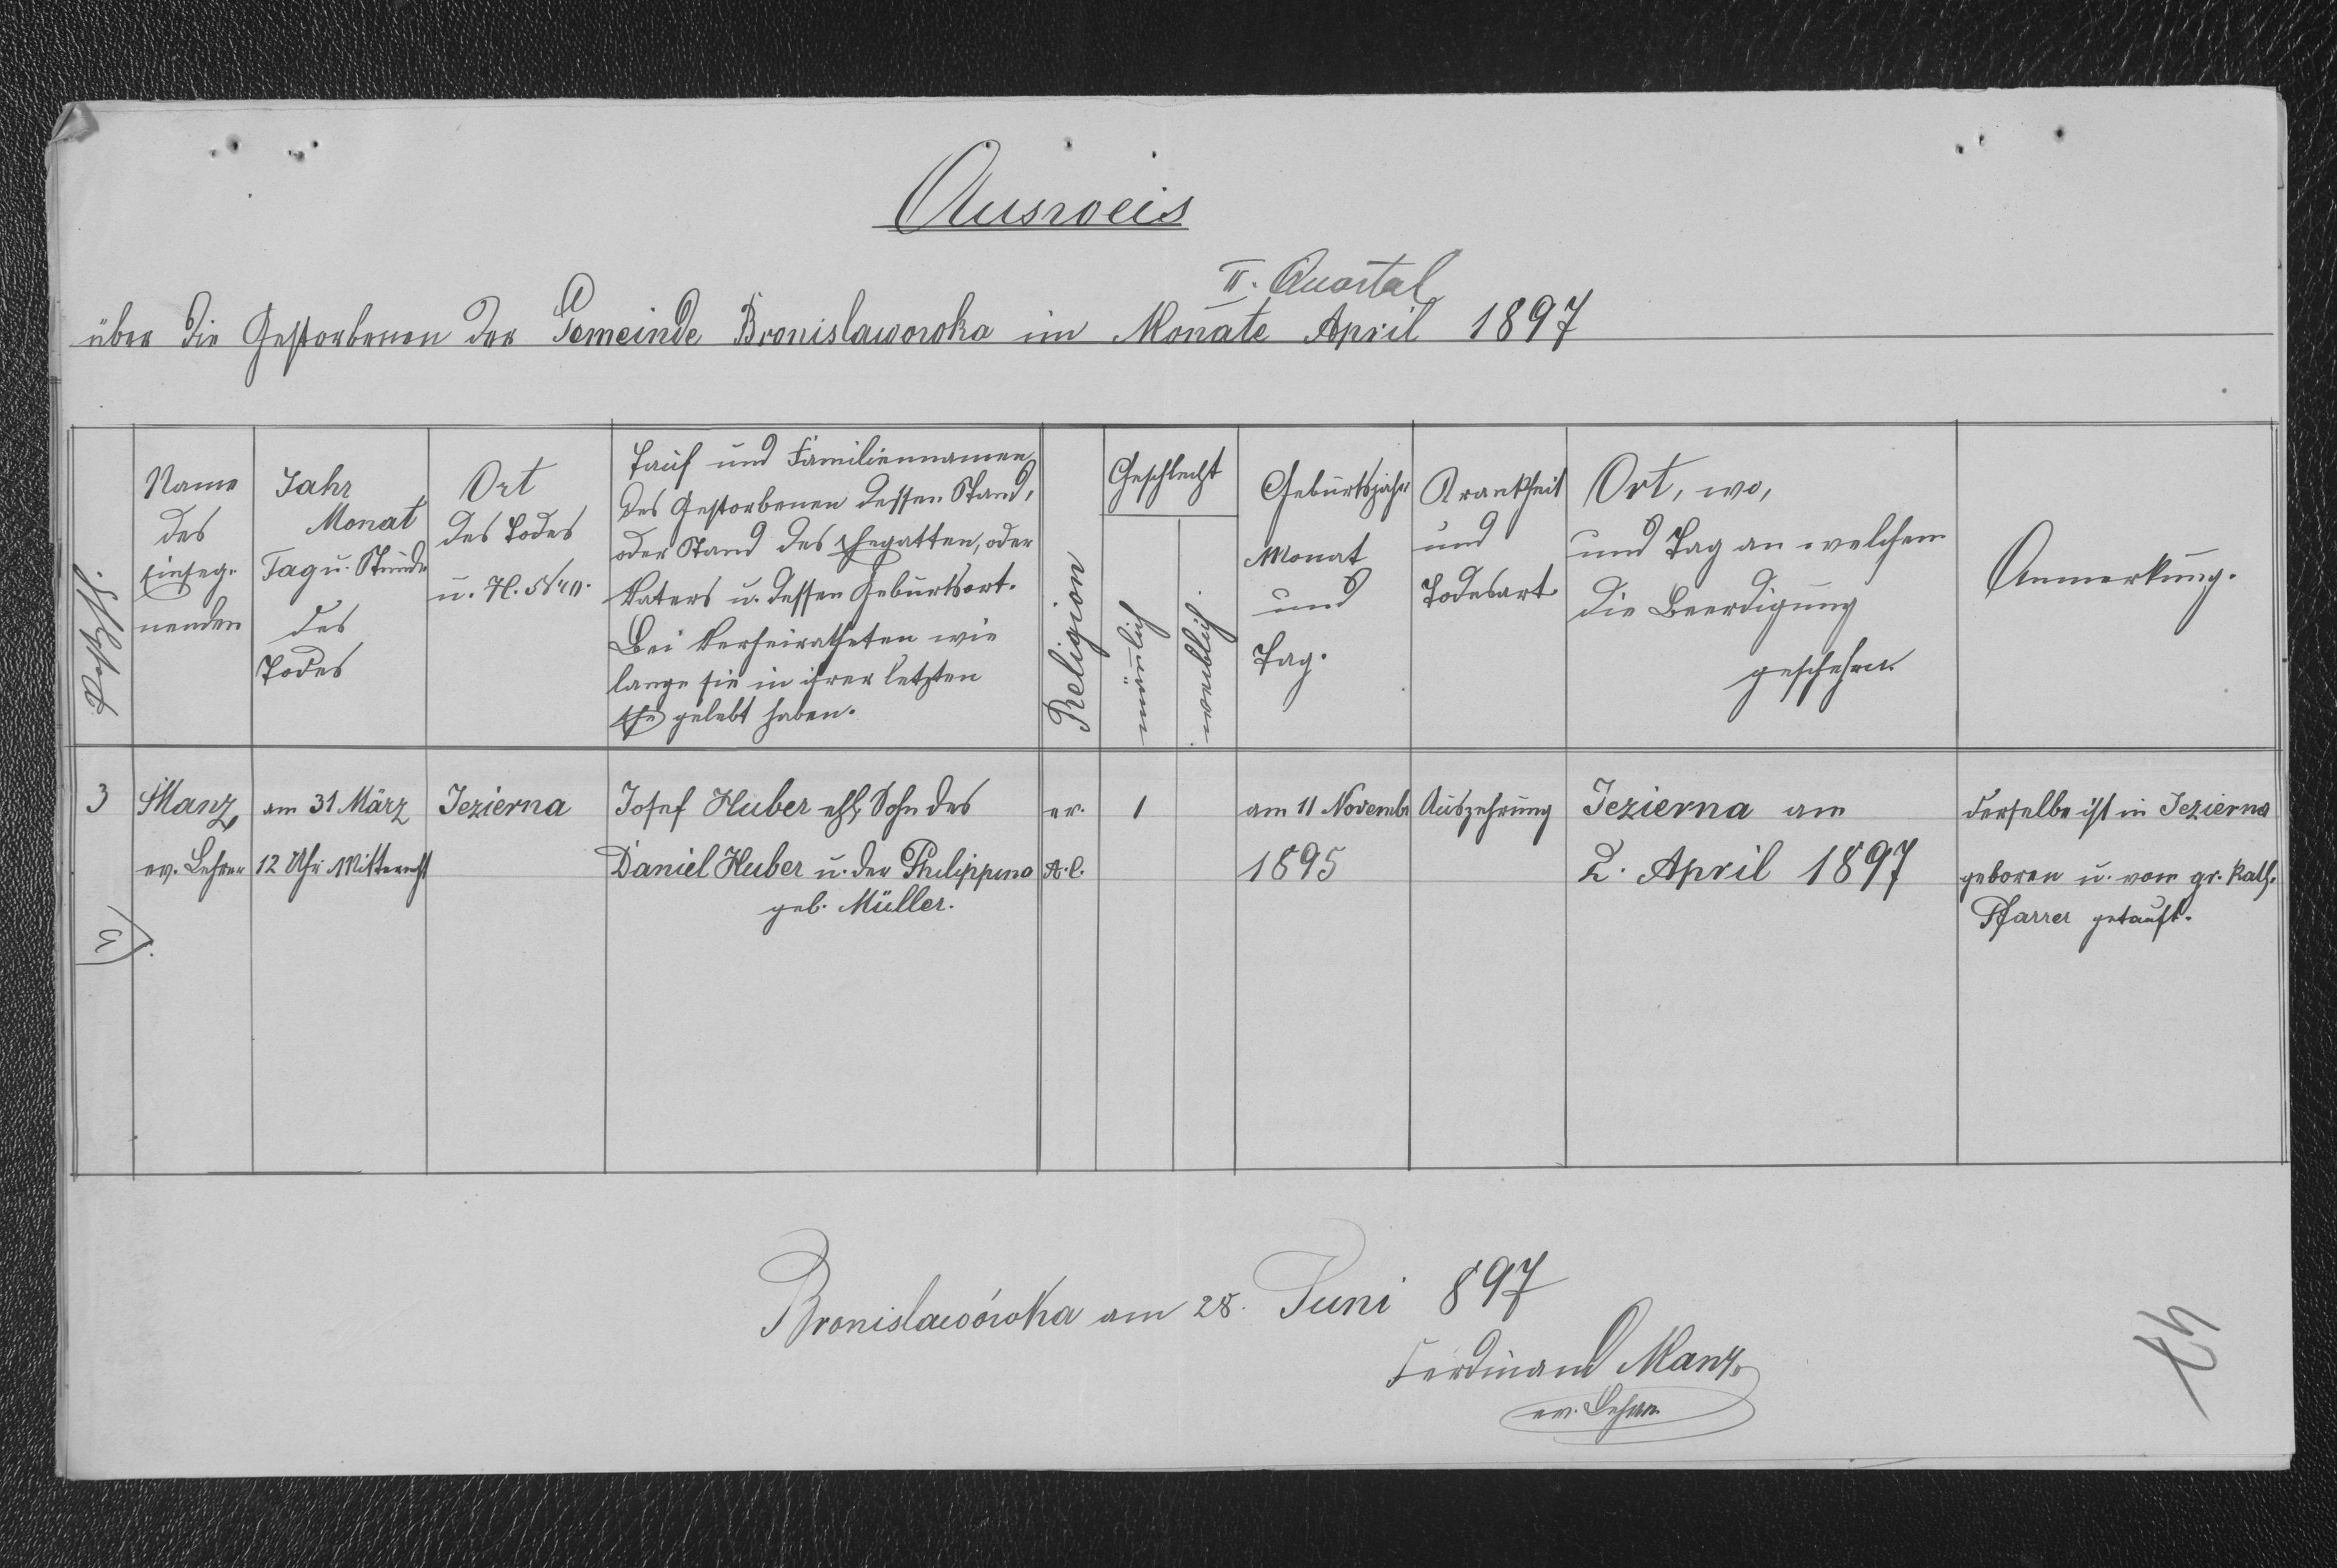 Ausweis
II. Quartal
über die Gestorbenen der Gemeinde Bronislawowka im Monate April 1897
Name
des
einseg-
nenden
Jahr
Monat
Tag u. Stunde
des
Todes
Ort
des Todes
u. H. Nro.
Tauf und Familiennamen
des Gestorbenen dessen Stand,
oder Stand des Ehegatten, oder
Vaters u. dessen Geburtsort.
Bei Verheiratheten wie
lange sie in ihrer letzten
Ehe gelebt haben.
Religion
Geschlecht
männlich
weiblich
Geburtsjahr
Monat
und
Tag.
Krankheit
und
Todesart
Ort, wo,
und Tag an welchem
die Beerdigung
geschehen.
Anmerkung.
3
Manz
ev. Lehrer
am 31 März
12 Uhr Mitternacht
Jezierna
Josef Huber ehl. Sohn des
Daniel Huber u. der Philippina
geb. Müller.
ev.
A. C.
1
am 11 Novemb
1895
Auszehrung
Jezierna am
2. April 1897
Derselbe ist in Jezierna
geboren u. vom gr. kath.
Pfarrer getauft.
Bronislawówka am 28. Juni 897
Ferdinand Manz
ev. Lehrer